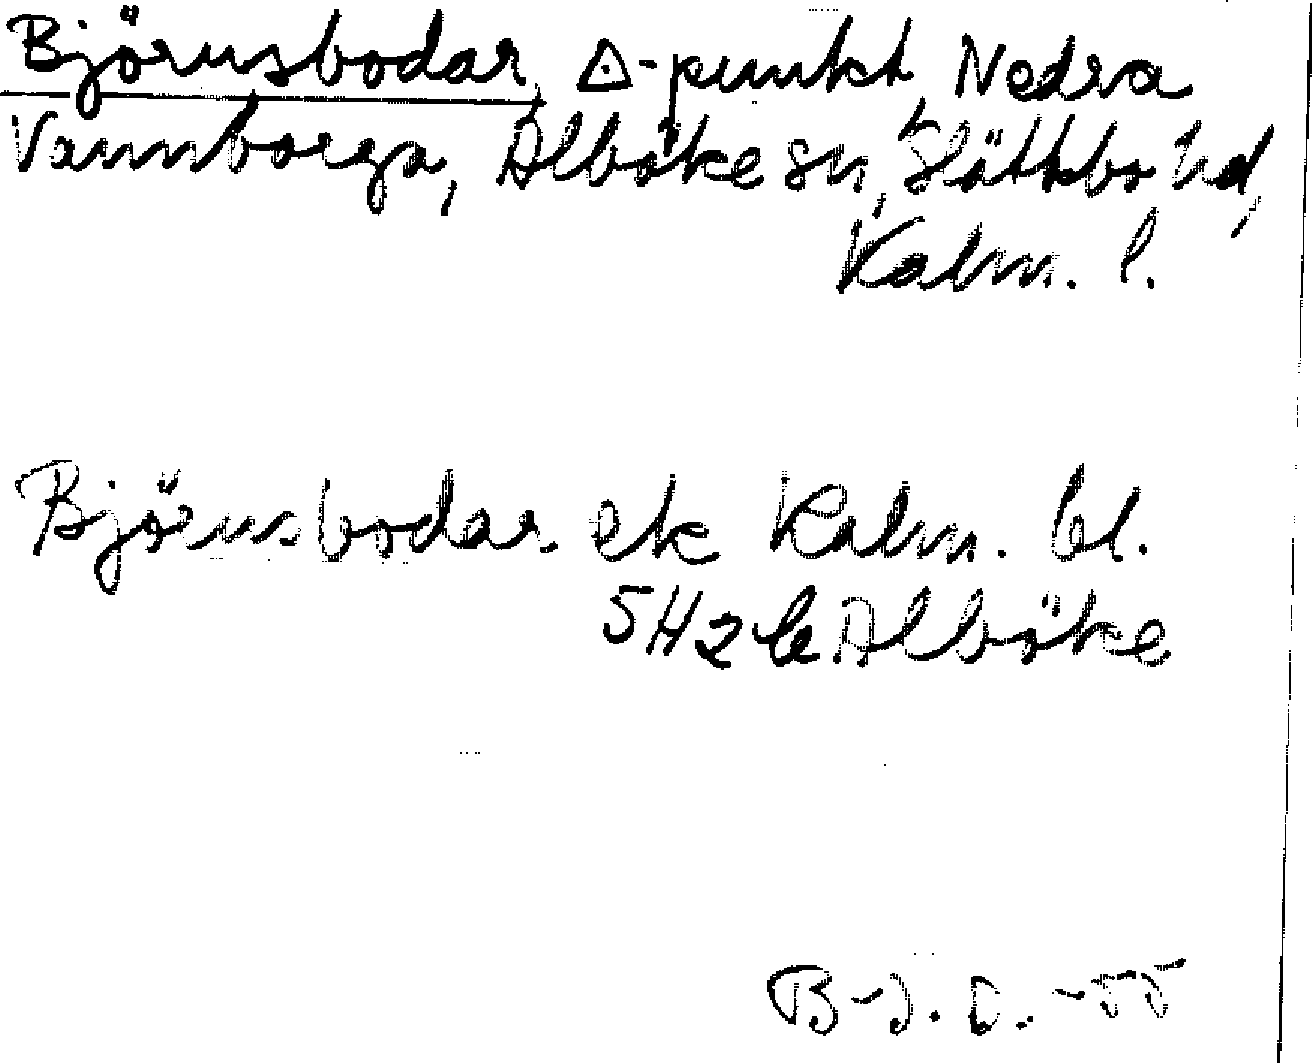 Björnsbodar, △-punkt, Nedra
Vannborga, Alböke sn, Slättbo hd,
Kalm. l.
Björnsbodar ek Kalm. bl.
5H2b Alböke
B-J. -55